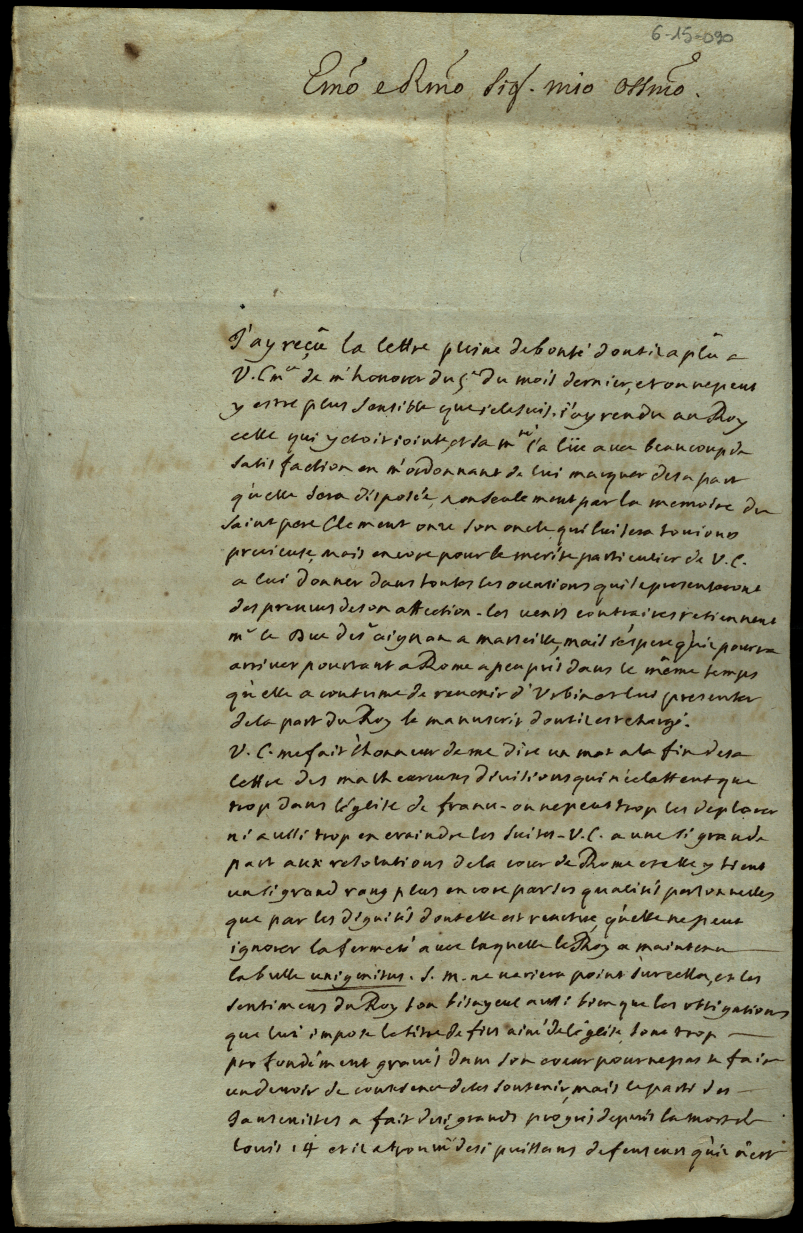 6-15-030
Emo e Rmo Sigr. mio ossmo.
J'ay reçeu la lettre pleine de bonté dont il a plû a
V. Emce de m'honorer du 5e du mois dernier, et on ne peut
y estre plus sensible que je le suis. j'ay rendu au Roy
celle qui y etoit jointe, et sa Mté l'a lüe avec beaucoup de
satisfaction en m'ordonnant de lui marquer de sa part
qu'elle sera disposée, non seulement par la memoire du
saint pere Clement onze son oncle qui lui sera toujours
precieuse, mais encore pour le merite particulier de V. E.
a lui donner dans toutes les occasions qui se presenteront
des preuves de son affection. les vents contraires retiennent
Mr le Duc de St aignan a marseille, mais j'espere qu'il pourra
arriver pourtant a Rome a peu pres dans le même temps
qu'elle a coutume de revenir d'Urbin et lui presenter
de la part du Roy le manuscrit dont il est chargé.
V. E. me fait l'honneur de me dire un mot a la fin de sa
lettre des malheureuses divisions qui n'éclattent que
trop dans l'église de france. on ne peut trop les deplorer
ni aussi trop en craindre les suites. V. E. a une si grande
part aux resolutions de la cour de Rome et elle y tient
un si grand rang plus encore par ses qualités personnelles
que par les dignités dont elle est revetüe, qu'elle ne peut
ignorer la fermeté avec laquelle le Roy a maintenu
la bulle unigenitus. S. M. ne variera point sur cella, et les
sentimens du Roy son bisayeul aussi bien que les obligations
que lui impose le titre de fils ainé de l'église, sont trop
profondément gravés dans son coeur pour ne pas se faire
un devoir de conscience de les soutenir, mais le parti des
Jansenistes a fait de si grands progres depuis la mort de
Louis 14 et il a trouvé de si puissans defenseurs qu'il n'est